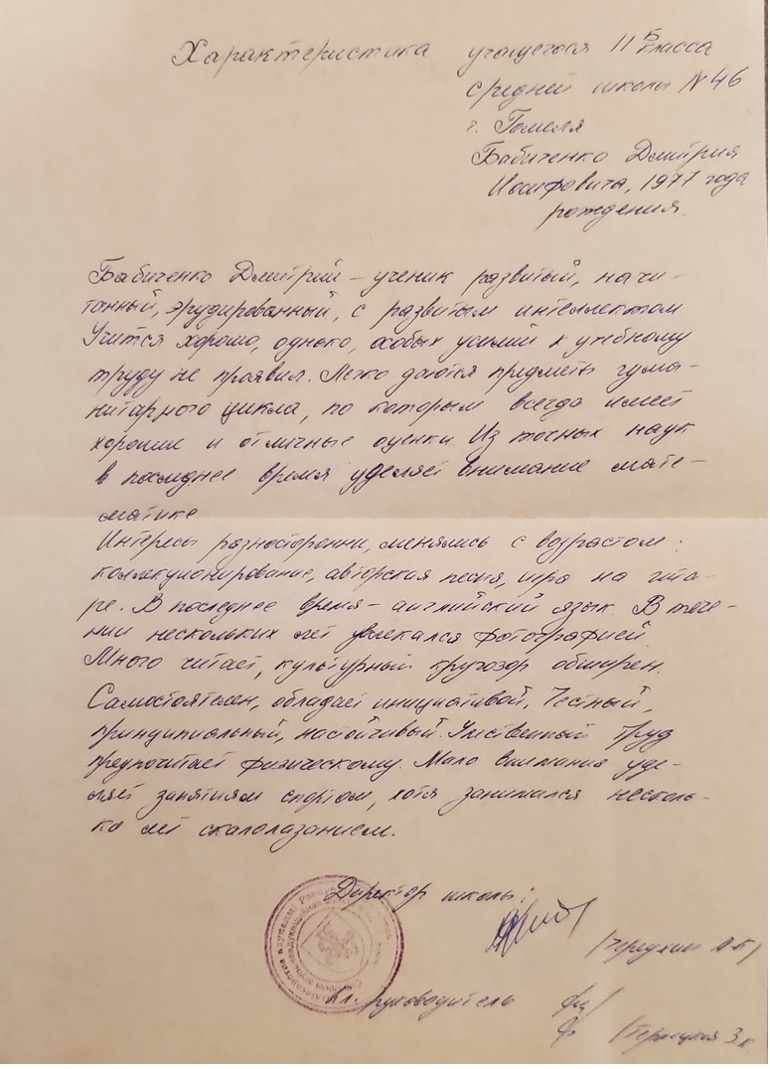 Характеристика учащегося 11 Б класса
средней школы N 46
г. Гомеля
Бабиченко Дмитрия
Иосифовича, 1977 года
рождения.
Бабиченко Дмитрий – ученик развитый, начи-
танный, эрудированный, с развитым интеллектом
Учится хорошо, однако, особых усилий к учебному
труду не проявил. Легко даются предметы гума-
нитарного цикла, по которым всегда имеет
хорошие и отличные оценки. Из точных наук
в последнее время уделяет внимание мате-
матике
Интересы разносторонни, менялись с возрастом:
коллекционирование, авторская песня, игра на гита-
ре. В последнее время – английский язык. В тече-
нии нескольких лет увлекался фотографией.
Много читает, культурный кругозор обширен.
Самостоятелен, обладает инициативой. Честный,
принципиальный, настойчивый. Умственный труд
предпочитает физическому. Мало внимания уде-
ляет занятиям спортом, хотя занимался несколь-
ко лет скалолазанием.
Директор школы:
Кл. руководитель